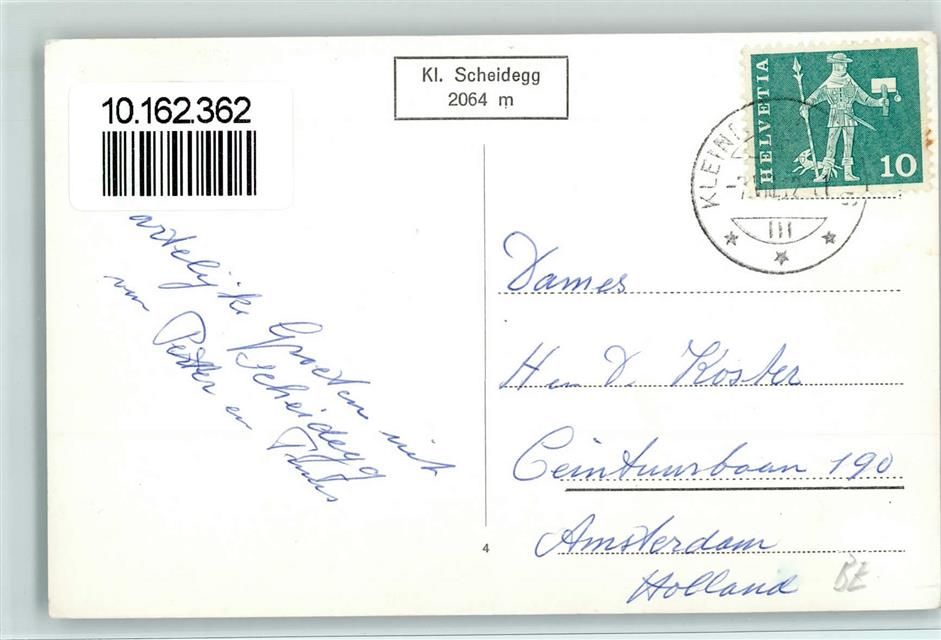 Kl. Scheidegg
2064 m
10.162.362
HELVETIA
10
KLEINE
artelijke Groeten uit
Scheidegg
van Peter en
Dames
H en D. Koster
Ceintuurbaan 190
Amsterdam
Holland
4
BE